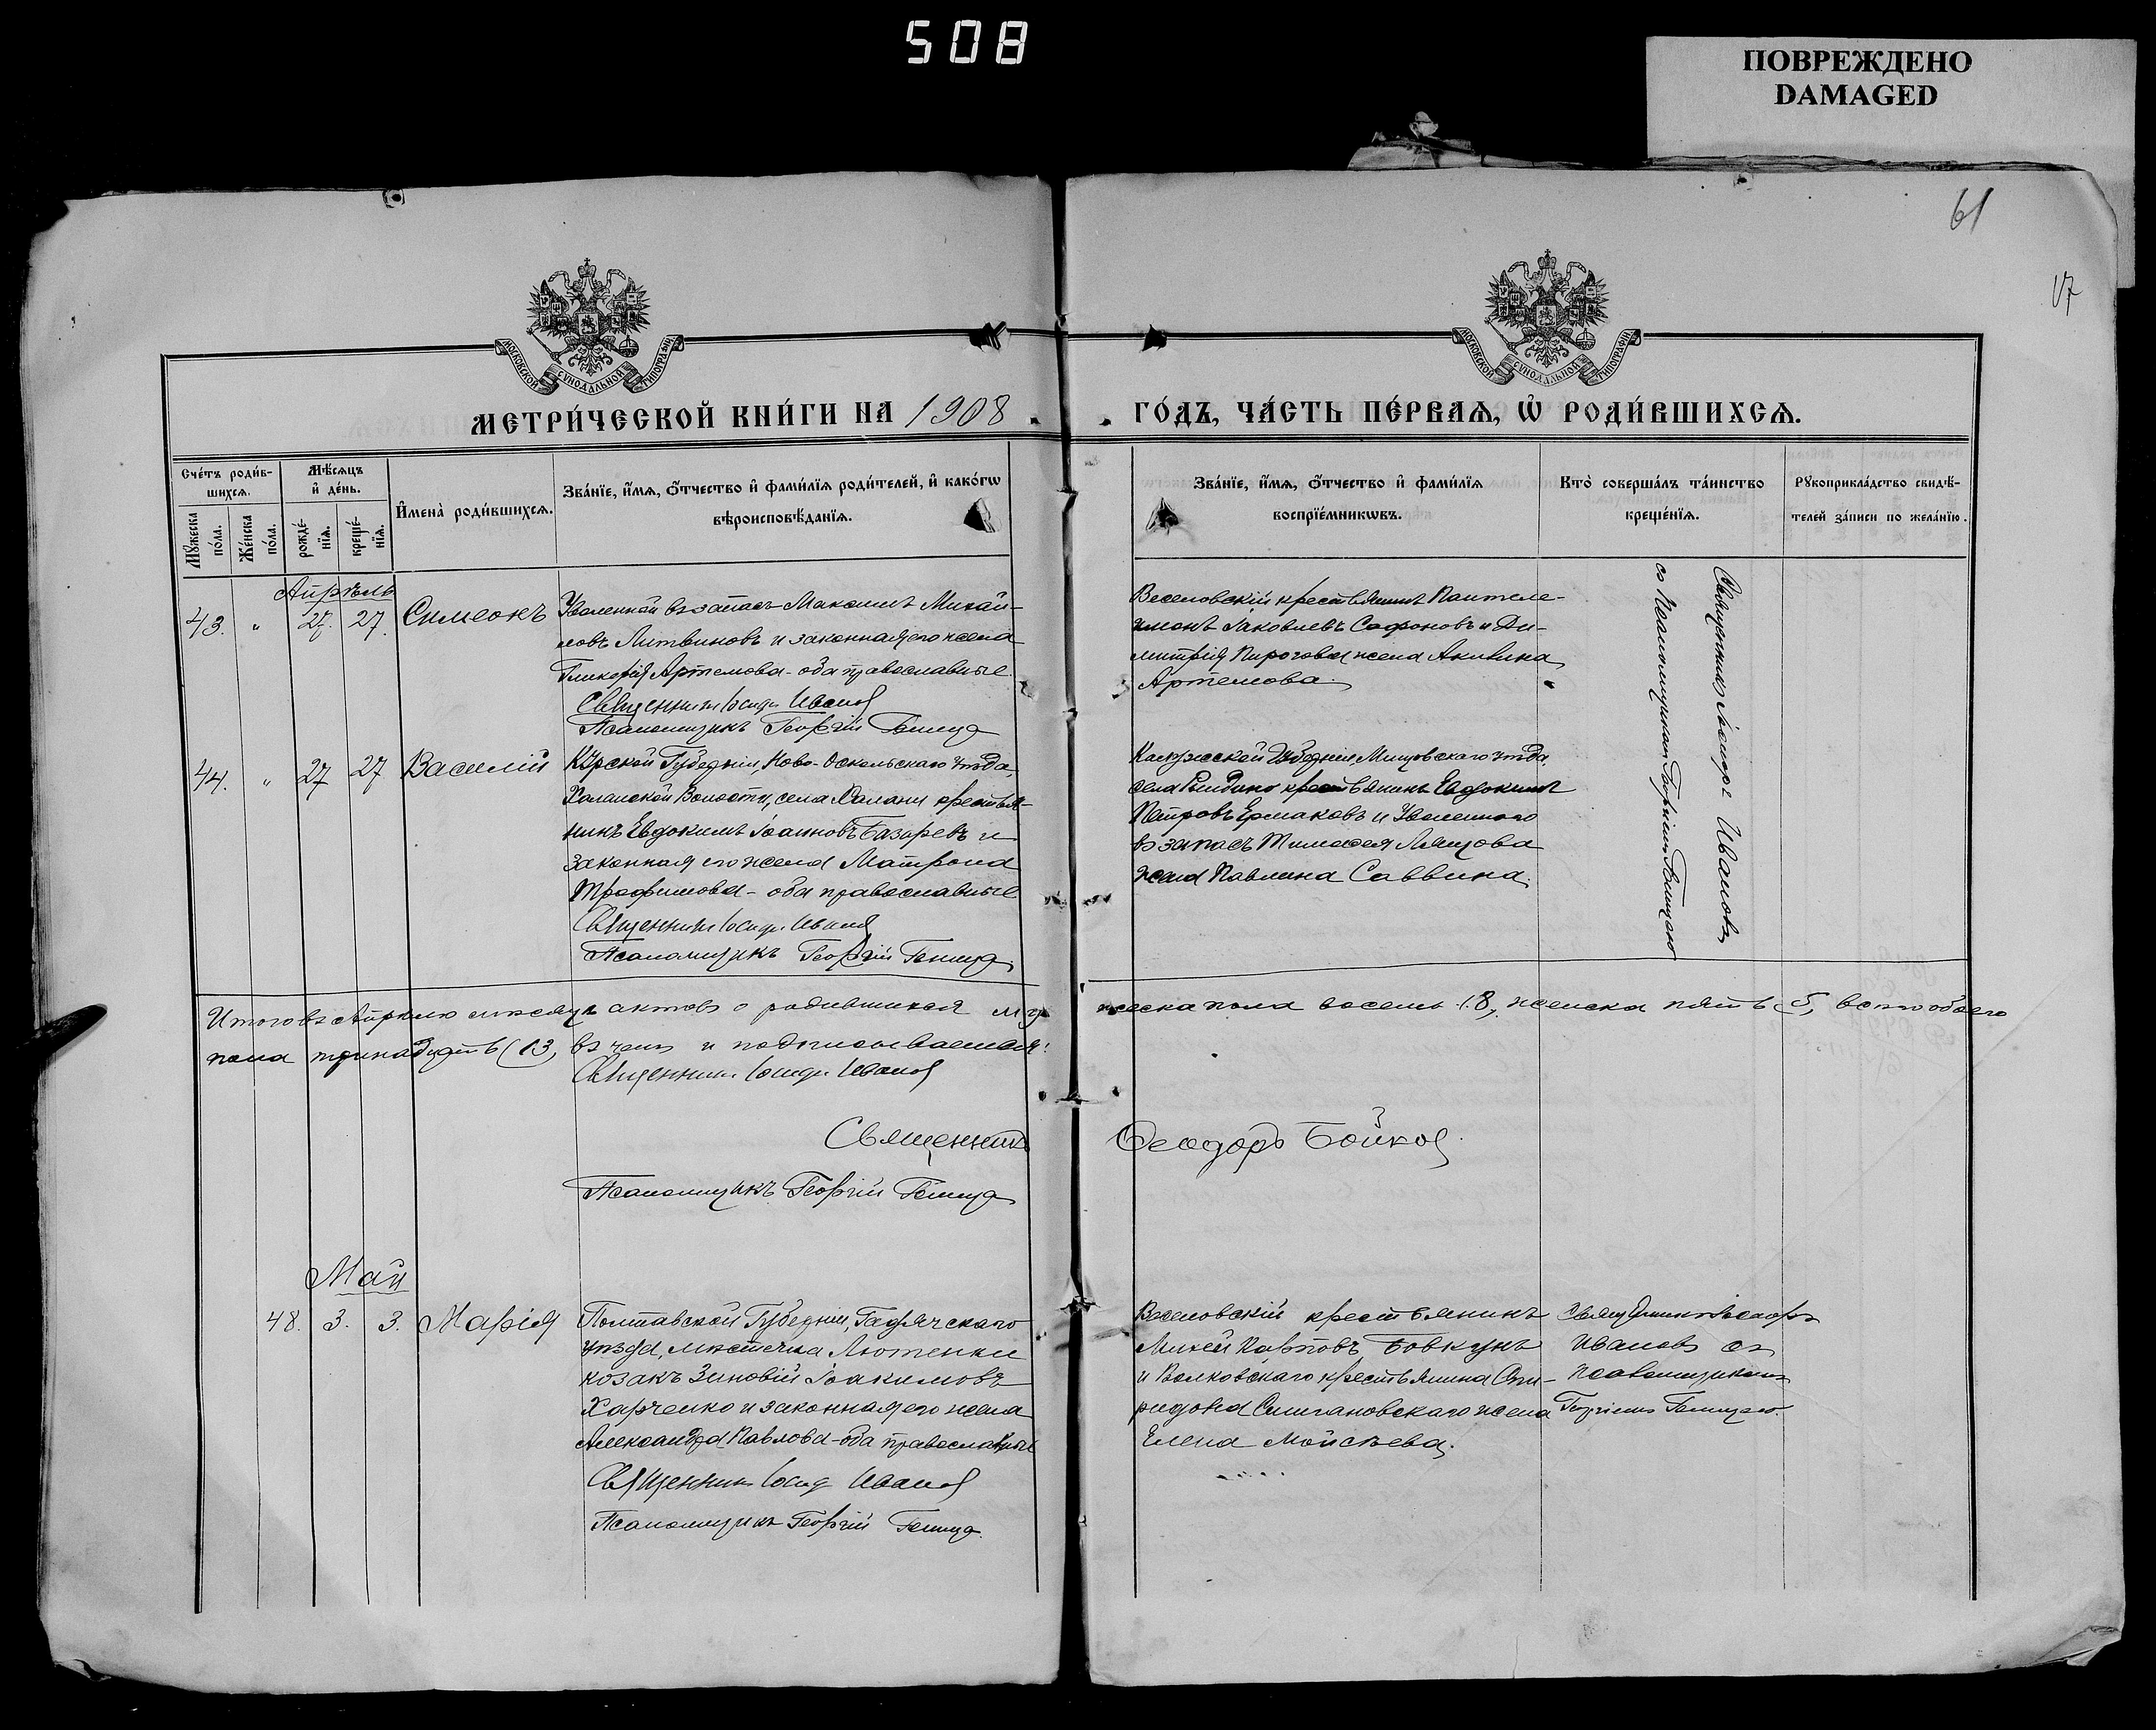 508
ПОВРЕЖДЕНО
DAMAGED
61
17
МОСКОВСКОЙ СѴНОДАЛЬНОЙ ТИПОГРАФІИ
МОСКОВСКОЙ СѴНОДАЛЬНОЙ ТИПОГРАФІИ
МЕТРИ́ЧЕСКОЙ КНИ́ГИ НА 1908
ГО́ДЪ, ЧА́СТЬ ПЕ́РВАѦ, Ѡ РОДИ́ВШИХСѦ.
Сче́тъ роди́в-
шихсѧ.
Мѣ́сѧцъ
и҆ де́нь.
Мꙋ́жеска
по́ла.
Же́нска
по́ла.
рожде́-
нїѧ.
креще́-
нїѧ.
И҆мена̀ роди́вшихсѧ.
Зва́нїе, и҆́мѧ, ѻ҆́тчество и҆ фами́лїѧ роди́телей, и҆ како́гѡ
вѣроисповѣ́данїѧ.
Зва́нїе, и҆́мѧ, ѻ҆́тчество и҆ фами́лїѧ
воспрїе́мникѡвъ.
Кто̀ соверша́лъ та́инство
креще́нїѧ.
Рꙋкоприкла́дство свидѣ́-
телей за́писи по жела́нїю.
Апрѣль
43. " 27. 27. Симеонъ
Уволенной въ запасъ Максимъ Михай-
ловъ Литвиновъ и законная его жена
Гликерія Артемова - оба православные
Священникъ Іосифъ Иванов
Псаломщикъ Георгій
Веселовскій крестьянинъ Пантеле-
имонъ Іаковлевъ Сафоновъ и Ди-
митрія Пирогова жена Акилина
Артемова.
Священникъ Іосифъ Ивановъ
съ Псаломщикомъ Георгіемъ
44. " 27 27 Василій
Курской Губерніи, Ново-Оскольскаго уѣзда,
Халанской Волости, села Халани крестья-
нинъ Евдокимъ Іоанновъ Базаревъ и
законная его жена Матрона
Трофимова - оба православные
Священникъ Іосифъ Иванов
Псаломщикъ Георгій
Калужской Губерніи, Мещовскаго уѣзда,
села крестьянинъ Евдокимъ
Петровъ Ермаковъ и Уволенного
въ запасъ Тимофея
жена Павлина Саввина.
Итого въ Апрѣлѣ мѣсяцѣ актовъ о родившихся му
жеска пола восемь (8), женска пять (5), всего обоего
пола тринадцать (13), въ чемъ и подписываемся:
Священникъ Іосифъ Иванов
Священникъ Ѳеодоръ Бойков.
Псаломщикъ Георгій
Май
48. 3. 3. Марія
Полтавской Губерніи, Гадячскаго
уѣзда, мѣстечка Лютенки
козакъ Зиновій Іоакимовъ
Харченко и законная его жена
Александра Павлова - оба православные
Священникъ Іосиф Иванов
Псаломщикъ Георгій
Веселовскій крестьянинъ
Михей Карповъ Бовкунъ
и Волковскаго крестьянина Спи-
ридона жена
Елена Мойсѣева.
Священникъ Іосифъ
Ивановъ съ
псаломщикомъ
Георгіемъ